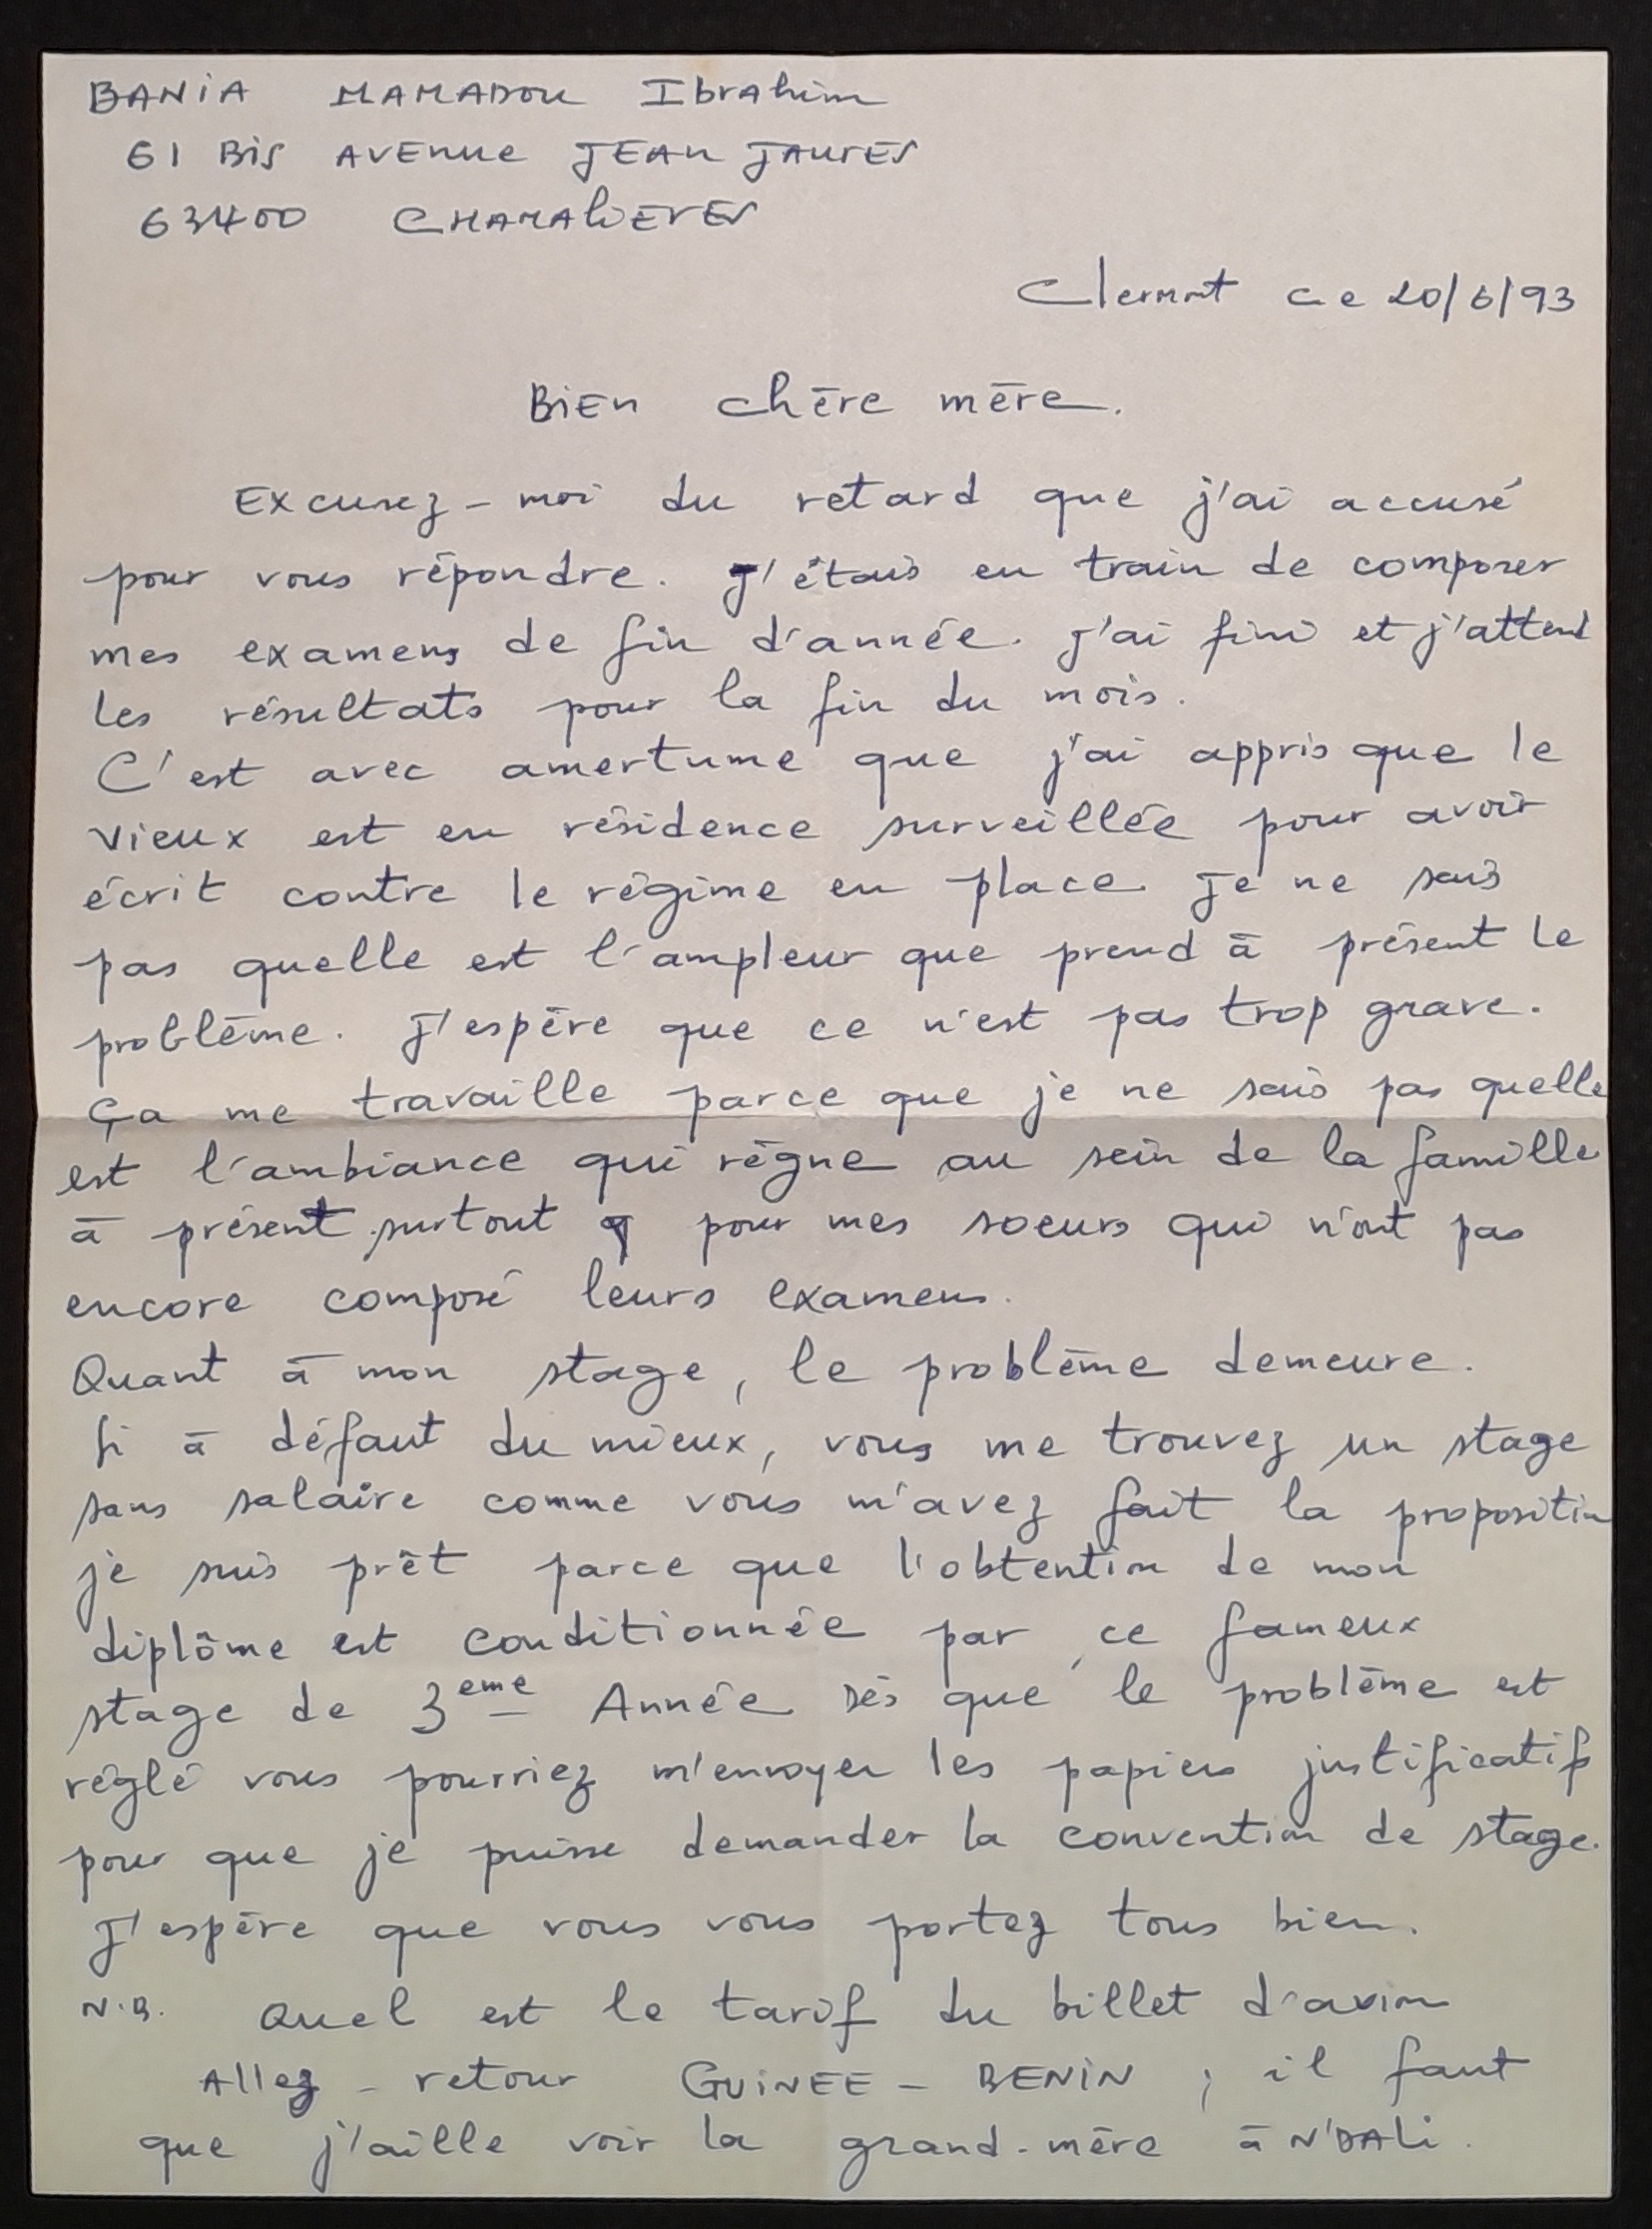 BANIA MAMADOU Ibrahim
61 Bis AVENUE JEAN JAURES
63400 CHAMALIERES
Clermont ce 20/6/93
BIEN chère mère.
Excusez-moi du retard que j'ai accusé
pour vous répondre. J'étais en train de composer
mes examens de fin d'année. J'ai fini et j'attend
les résultats pour la fin du mois.
C'est avec amertume que j'ai appris que le
vieux est en résidence surveillée pour avoir
écrit contre le régime en place. Je ne sais
pas quelle est l'ampleur que prend à présent le
problème. J'espère que ce n'est pas trop grave.
Ça me travaille parce que je ne sais pas quelle
est l'ambiance qui règne au sein de la famille
à présent surtout pour mes soeurs qui n'ont pas
encore composé leurs examens.
Quant à mon stage, le problème demeure.
Si à défaut du mieux, vous me trouvez un stage
sans salaire comme vous m'avez fait la proposition
je suis prêt parce que l'obtention de mon
diplôme est conditionnée par ce fameux
stage de 3eme Année. Dès que le problème est
réglé vous pourriez m'envoyer les papiers justificatifs
pour que je puisse demander la convention de stage.
J'espère que vous vous portez tous bien.
N.B. Quel est le tarif du billet d'avion
Allez-retour GUINEE - BENIN ; il faut
que j'aille voir la grand-mère à N'DALi.